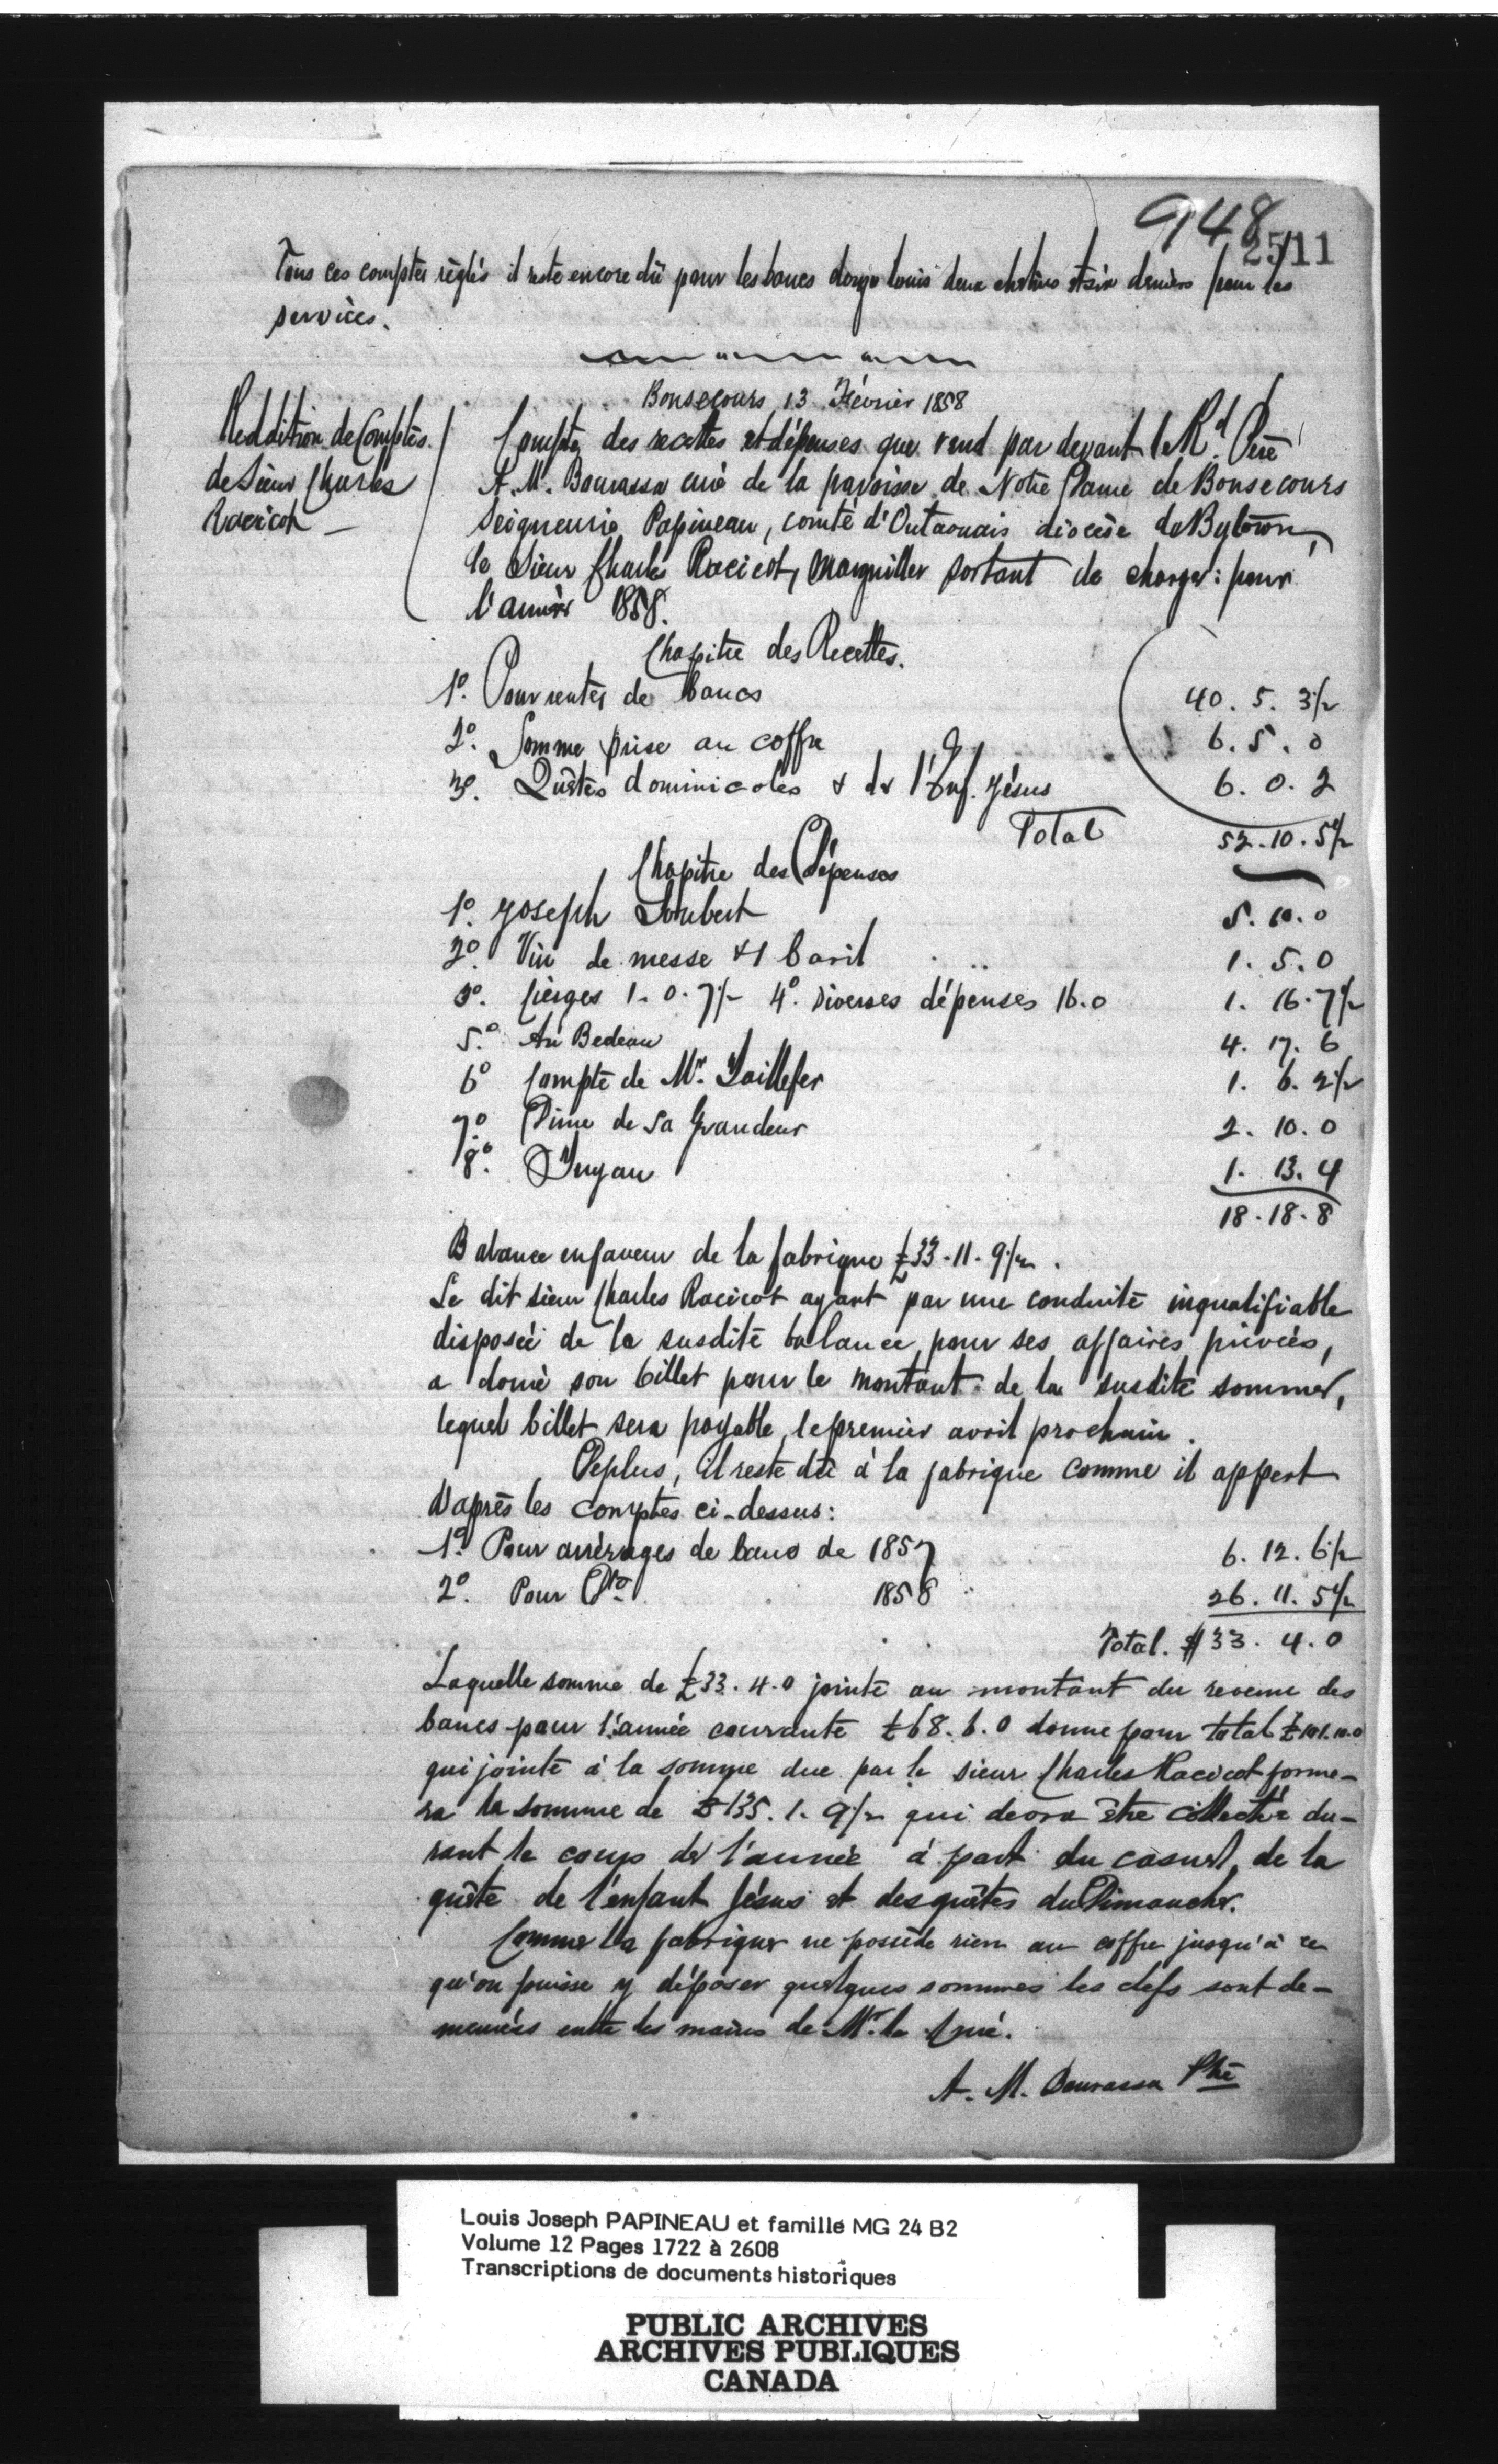 948
2511
Tous ces comptes règlés il reste encore dû pour les bancs douze louis deux chelins et six deniers pour les
services.
Bonsecours 13 Février 1858
Reddition de Comptes.
de Sieur Charles
Racicot —
Compte des recettes et dépenses que rend par devant le Rd. Père
A. M. Bourassa curé de la paroisse de Notre Dame de Bonsecours
Seigneurie Papineau, comté d'Outaouais diocèse de Bytown,
le Sieur Charles Racicot, Marguiller sortant de charge: pour
l'année 1858.
Chapitre des Recettes.
1º. Pour rentes de bancs 40. 5. 3½
2º. Somme prise au coffre 6. 5. 0
3º. Quêtes dominicales & de l'Enf. Jésus 6. 0. 2
Total 52. 10. 5½
Chapitre des Dépenses
1º. Joseph Loubert 5. 10. 0
2º. Vin de messe & 1 baril 1. 5. 0
3º. Cierges 1. 0. 7½ 4º. Diverses dépenses 16.0 1. 16. 7½
5.º Au Bedeau 4. 17. 6
6º Compte de Mr. Taillefer 1. 6. 2½
7º. Dime de Sa Grandeur 2. 10. 0
8º. Tuyau 1. 13. 4
18. 18. 8
Balance en faveur de la fabrique £33. 11. 9½.
Le dit sieur Charles Racicot ayant par une conduite inqualifiable
disposée de la susdite balance, pour ses affaires privées,
a donné son billet pour le montant de la susdite somme,
lequel billet sera payable, le premier avril prochain.
De plus, il reste dû à la fabrique comme il appert
d'après les comptes ci-dessus:
1º. Pour arrérages de bancs de 1857 6. 12. 6½
2º. Pour Dto. 1858 26. 11. 5½
Total. $33. 4. 0
Laquelle somme de £33. 4. 0 jointe au montant du revenu des
bancs pour l'année courante £68. 6. 0 donne pour total £101. 10. 0
qui jointe à la somme due par le sieur Charles Racicot forme-
ra la somme de £135. 1. 9½ qui devra être collectée du-
rant le cours de l'année à part du casuel, de la
quête de l'enfant Jésus et des quêtes du Dimanche.
Comme la fabrique ne possède rien au coffre jusqu'à ce
qu'on puisse y déposer quelques sommes les clefs sont de-
meurées entre les mains de Mr. le Curé.
A. M. Bourassa Ptre
Louis Joseph PAPINEAU et famille MG 24 B2
Volume 12 Pages 1722 à 2608
Transcriptions de documents historiques
PUBLIC ARCHIVES
ARCHIVES PUBLIQUES
CANADA